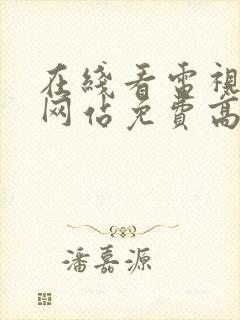 在綫看雷視
网佔免費高
潘嘉源